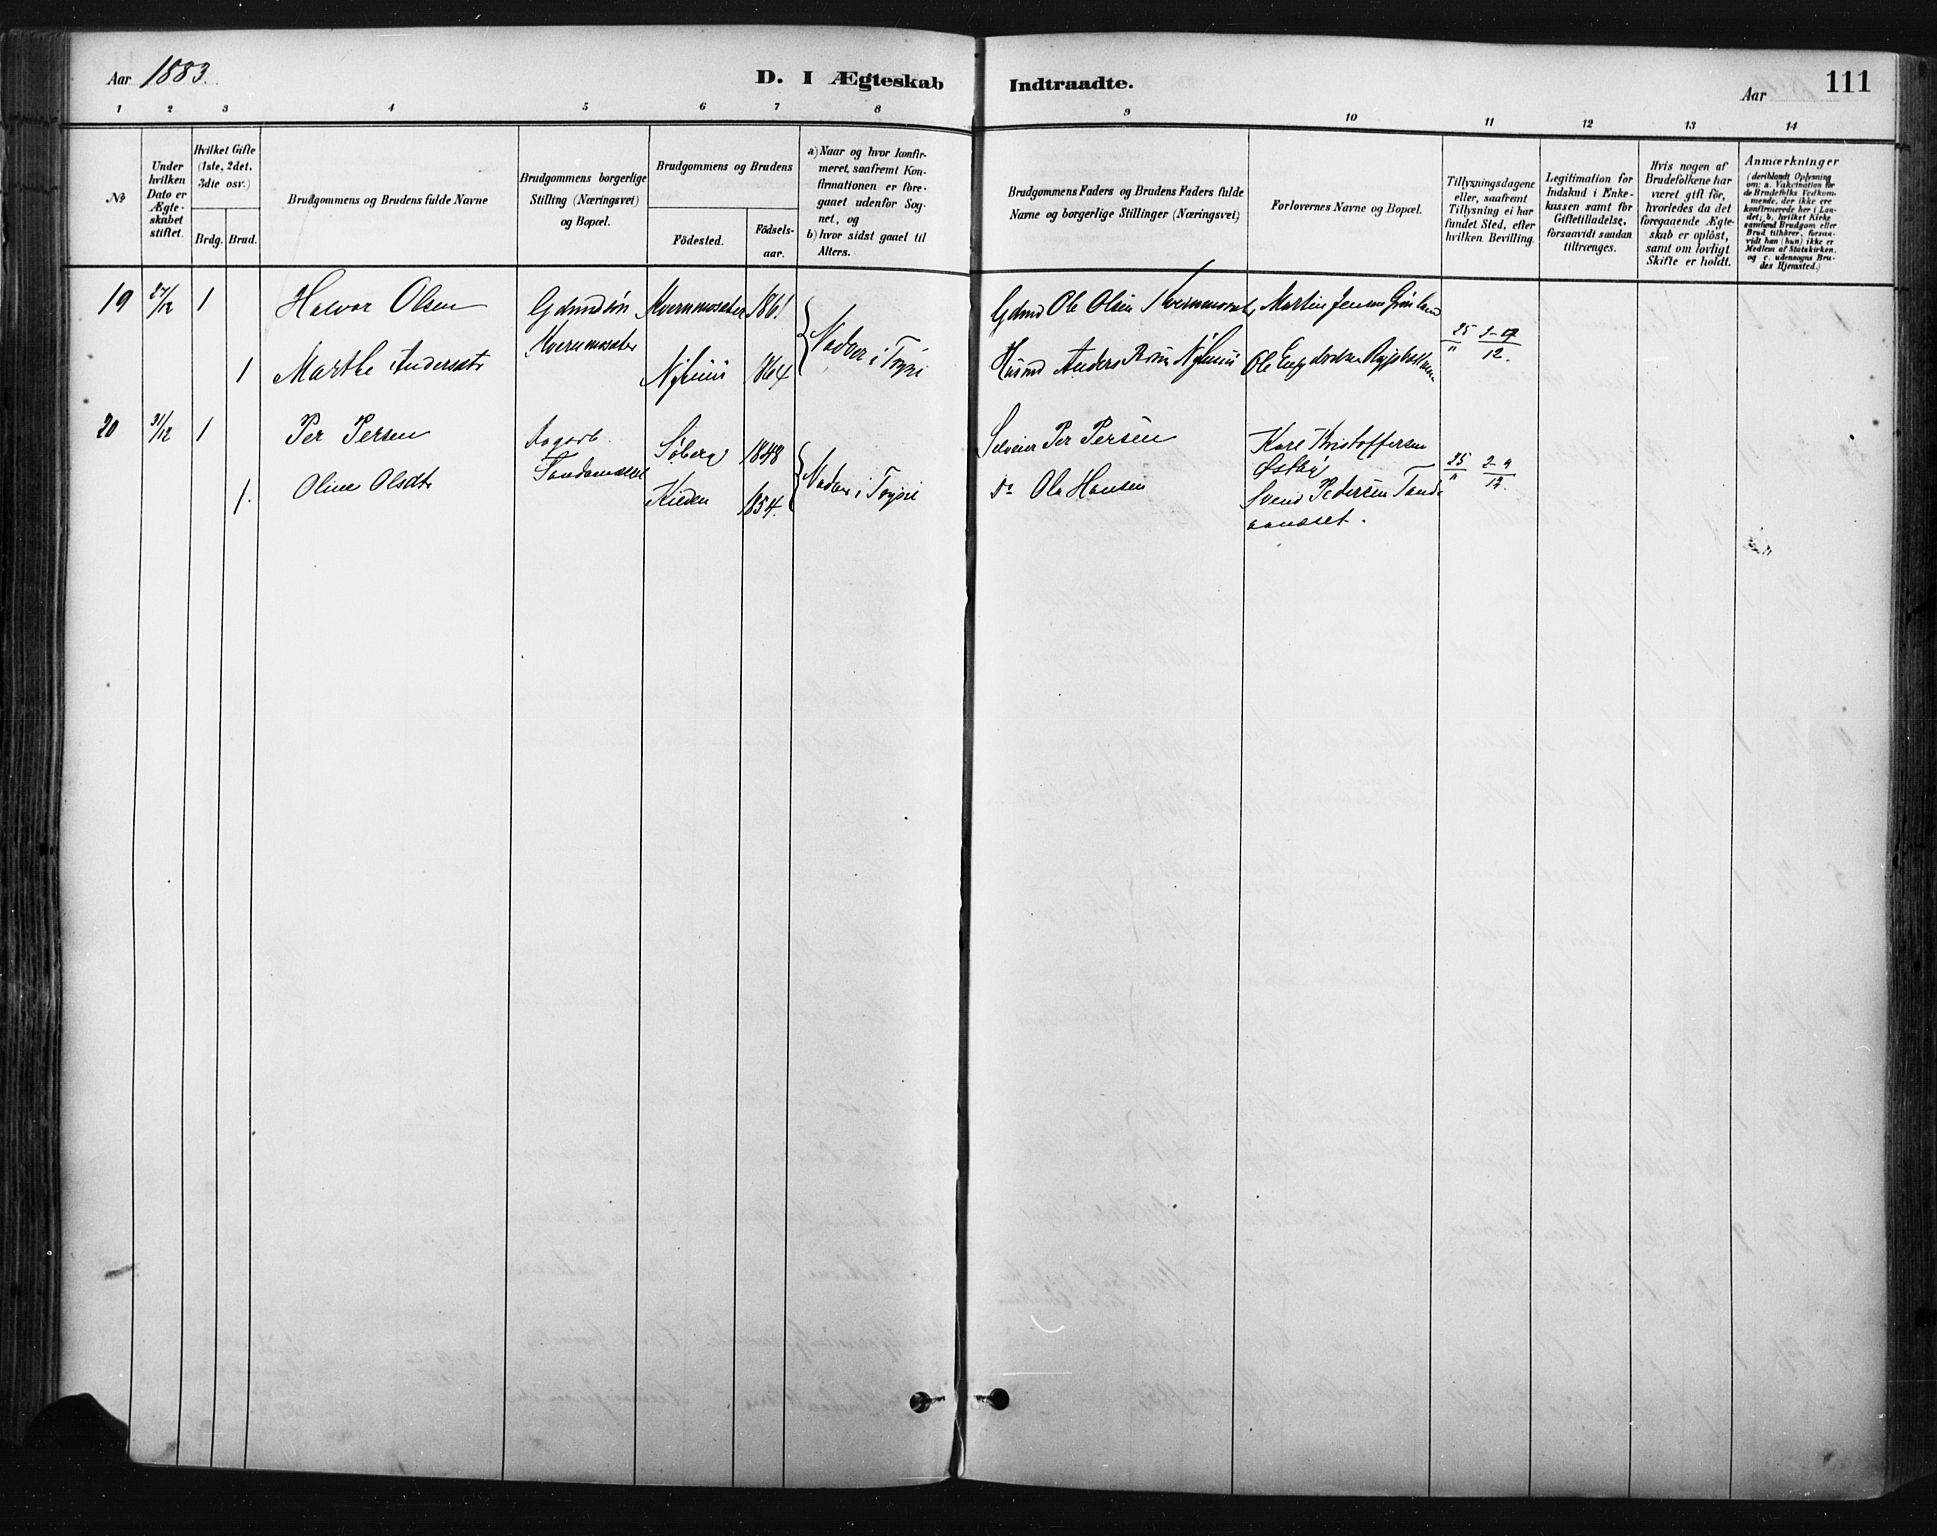 Aar 1883.
D. I Ægteskab
Indtraadte.
Aar
111
1 2 3 4 5 6 7 8 9 10 11 12 13 14
No
Under hvilken Dato er Ægteskabet stiftet.
Hvilket Gifte (1ste, 2det, 3die osv.)
Brdg. Brud.
Brudgommens og Brudens fulde Navne
Brudgommens borgerlige Stilling (Næringsvei) og Bopæl.
Brudgommens og Brudens
Födested.
Födsels-aar.
a) Naar og hvor konfirmeret, saafremt Konfirmationen er foregaaet udenfor Sognet, og
b) hvor sidst gaaet til Alters.
Brudgommens Faders og Brudens Faders fulde Navne og borgerlige Stillinger (Næringsvei)
Forlovernes Navne og Bopæl.
Tillysningsdagene eller, saafremt Tillysning ei har fundet Sted, efter hvilken Bevilling.
Legitimation for Indskud i Enkekassen samt for Giftetilladelse, forsaavidt saadan tiltrænges.
Hvis nogen af Brudefolkene har været gift för, hvorledes da det foregaaende Ægteskab er oplöst, samt om lovligt Skifte er holdt.
Anmærkninger
(deriblandt Oplysning om: a. Vakcination for de Brudefolks Vedkommende, der ikke ere konfirmerede her i Landet; b. hvilket Kirkesamfund Brudgom eller Brud tilhörer, forsaavidt han (hun) ikke er Medlem af Statskirken, og c. udensogns Brudes Hjemsted.)
19 27/12 1 Halvor Olsen
Gdmdsön
Kvernmosæter
Kvernmosæter 1861
Nadver i Trysil
Gdmd Ole Olsen Kvernmosæt
Martin Jensen Grönland
25/11 2-9/12.
1 Marthe Andersdtr
Nyhuus 1864
Husmd Anders Nyhuus
Ole
20 31/12 1 Per Persen
Sandaaneset
Söberg 1848
Nadver i Trysil
Selveier Per Persen
Kare Kristoffersen
25/11 2-9/12.
1. Oline Olsdtr
1854.
Do Ole Hansen
Svend Pedersen Tand-
aaneset.